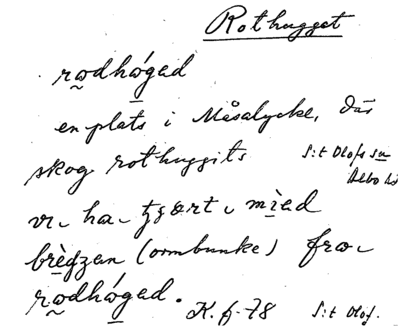 Rothugget
rodhǿgad
en plats i Måsalycke, där
skog rothuggits S:t Olofs sn
Albo hd
vı ha tzørt mìed
brègzan (ormbunke) fra
rodhǿgad.
K. f. 78 S:t Olof.